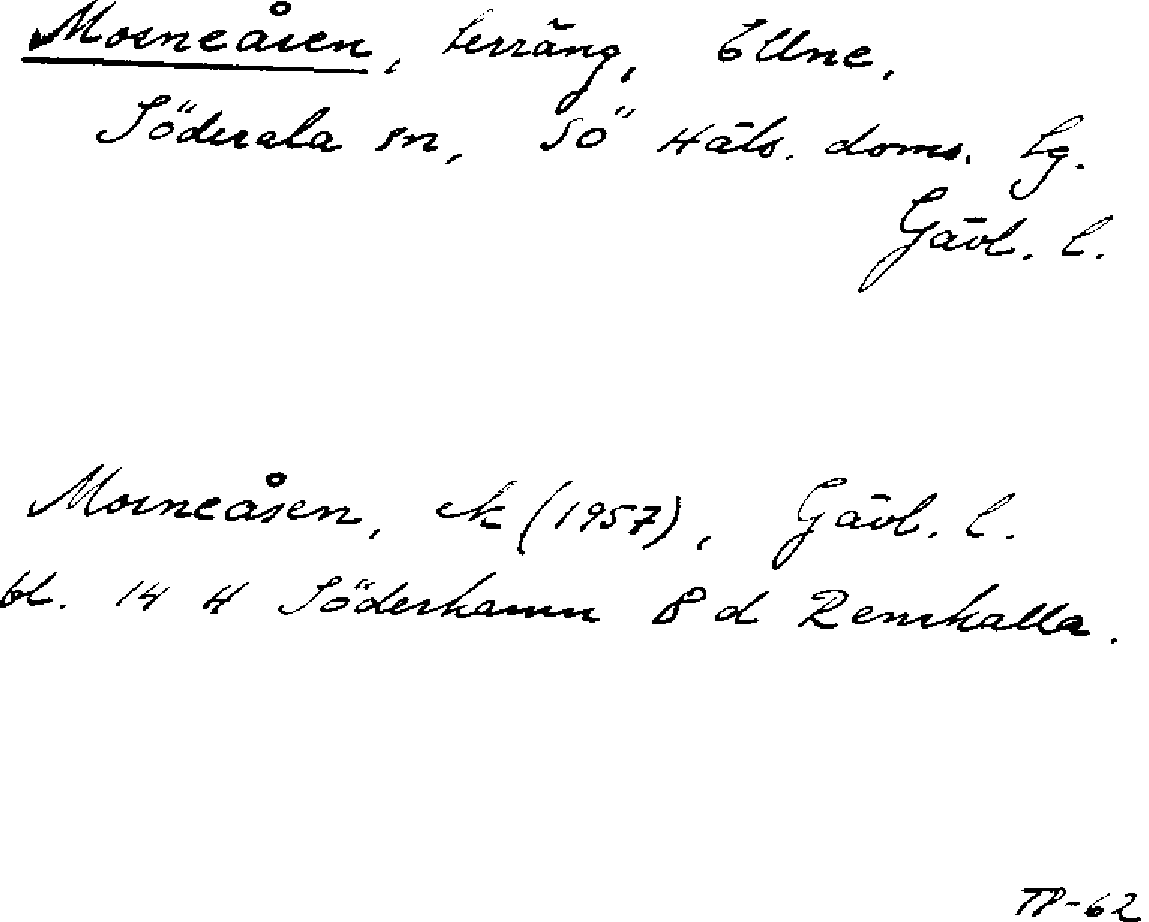 Mosneåsen, terräng, Ellne,
Söderala sn, SÖ Häls. doms. Lg.
Gävl. l.
Mosneåsen, ek (1957), Gävl. l.
bl. 14 H Söderhamn 8 d Renshalla.
TP-62